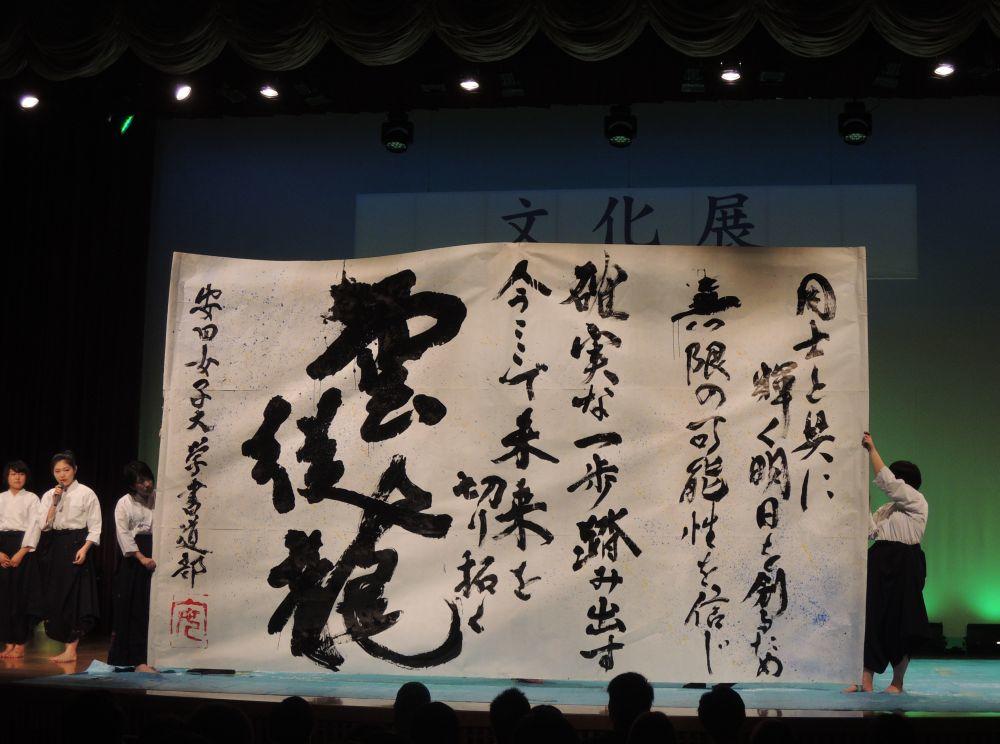 文化展
同士と具に
輝く明日を創るため
無限の可能性を信じ
確実な一歩踏み出す
今ここで未来を
切り拓く
雲従龍
安田女子大学書道部